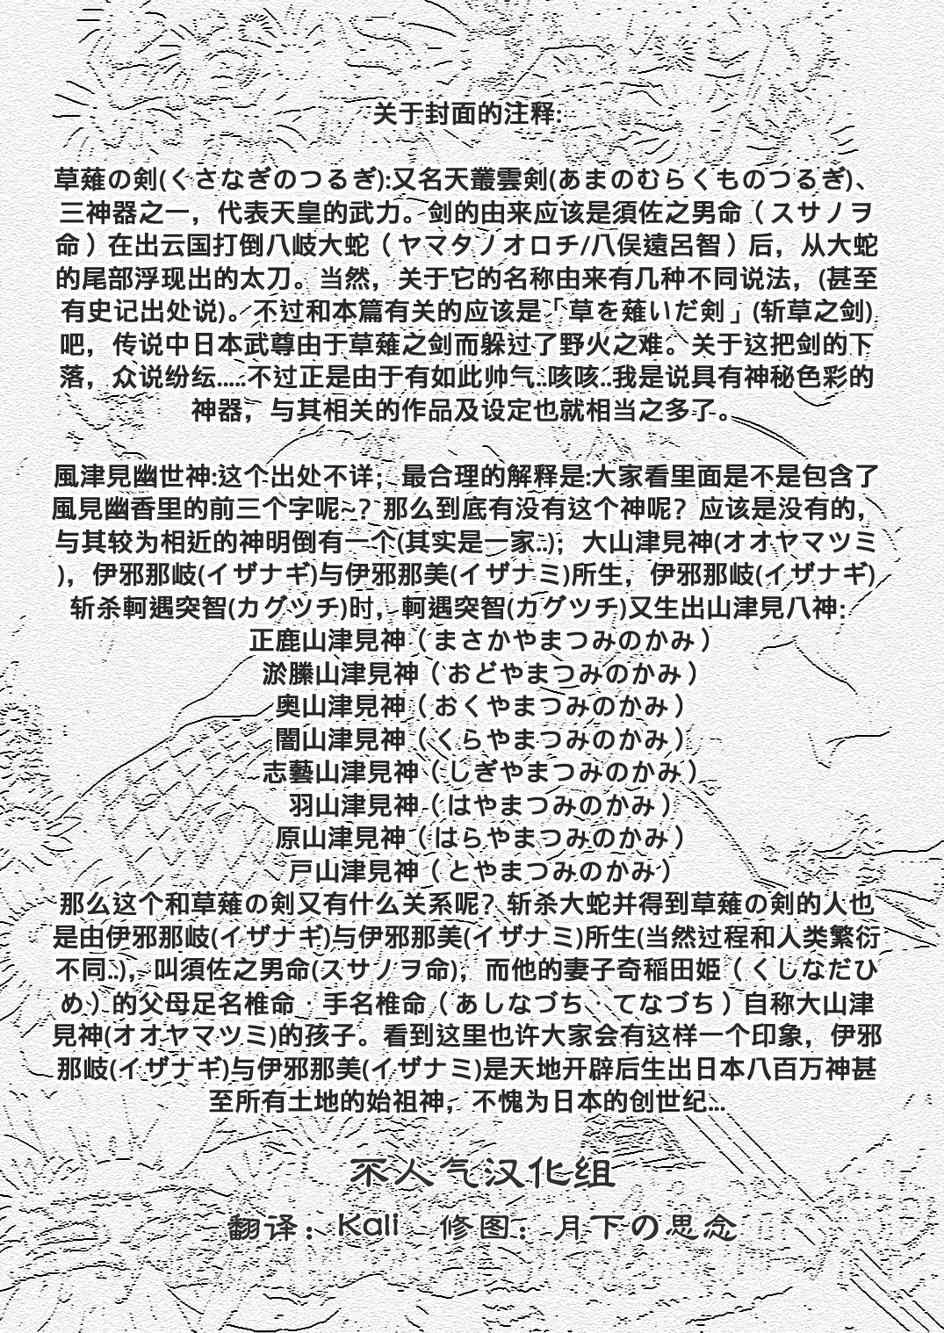 关于封面的注释:
草薙の剣(くさなぎのつるぎ):又名天叢雲剣(あまのむらくものつるぎ)、
三神器之一，代表天皇的武力。剑的由来应该是須佐之男命（スサノヲ
命）在出云国打倒八岐大蛇（ヤマタノオロチ/八俣遠呂智）后，从大蛇
的尾部浮现出的太刀。当然，关于它的名称由来有几种不同说法，(甚至
有史记出处说)。不过和本篇有关的应该是「草を薙いだ剣」(斩草之剑)
吧，传说中日本武尊由于草薙之剑而躲过了野火之难。关于这把剑的下
落，众说纷纭.....不过正是由于有如此帅气..咳咳..我是说具有神秘色彩的
神器，与其相关的作品及设定也就相当之多了。
風津見幽世神:这个出处不详；最合理的解释是:大家看里面是不是包含了
風見幽香里的前三个字呢~？那么到底有没有这个神呢？应该是没有的，
与其较为相近的神明倒有一个(其实是一家..)；大山津見神(オオヤマツミ
)，伊邪那岐(イザナギ)与伊邪那美(イザナミ)所生，伊邪那岐(イザナギ)
斩杀軻遇突智(カグツチ)时，軻遇突智(カグツチ)又生出山津見八神:
正鹿山津見神（まさかやまつみのかみ）
淤縢山津見神（おどやまつみのかみ）
奥山津見神（おくやまつみのかみ）
闇山津見神（くらやまつみのかみ）
志藝山津見神（しぎやまつみのかみ）
羽山津見神（はやまつみのかみ）
原山津見神（はらやまつみのかみ）
戸山津見神（とやまつみのかみ）
那么这个和草薙の剣又有什么关系呢？斩杀大蛇并得到草薙の剣的人也
是由伊邪那岐(イザナギ)与伊邪那美(イザナミ)所生(当然过程和人类繁衍
不同..)，叫須佐之男命(スサノヲ命)，而他的妻子奇稲田姫（くしなだひ
め）的父母足名椎命・手名椎命（あしなづち・てなづち）自称大山津
見神(オオヤマツミ)的孩子。看到这里也许大家会有这样一个印象，伊邪
那岐(イザナギ)与伊邪那美(イザナミ)是天地开辟后生出日本八百万神甚
至所有土地的始祖神，不愧为日本的创世纪...
不人气汉化组
翻译：Kali 修图：月下の思念